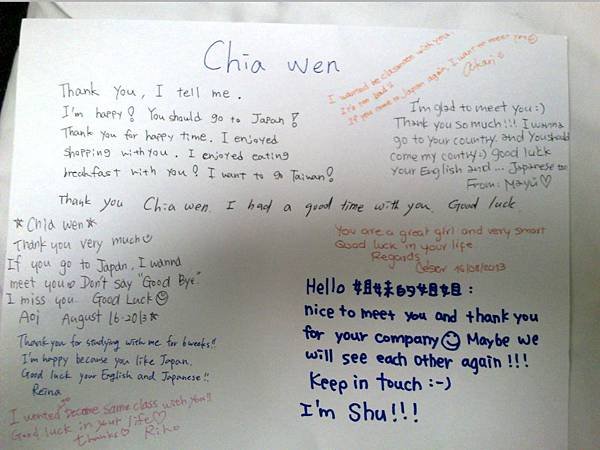 Chia wen
Thank you, I tell me.
I'm happy! You should go to Japan!
Thank you for happy time. I enjoyed
shopping with you. I enjoyed eating
breakfast with you! I want to go Taiwan!
I wanted be classmate with you.
It's too bad!!
If you come to Japan again, I want to meet you
Akari
I'm glad to meet you :)
Thank you so much!!! I wanna
go to your country. and You should
come my contry :) good luck
your English and ... Japanese too
From. Mayu ♡
Thank you Chia wen. I had a good time with you. Good luck
*Chia wen*
Thank you very much
If you go to Japan, I wanna
meet you Don't say "Good Bye"
I miss you. Good Luck
Aoi August 16. 2013*
You are a great girl and very smart
Good luck in your life
Regards
César 16/08/2013
Thank you for studying with me for 6 weeks!!
I'm happy because you like Japan.
Good luck your English and Japanese!!
Reina
I wanted become same class with you!!
Good luck in your life ♡
thanks ♡ Riho
Hello 姐妹的姐姐 :
nice to meet you and thank you
for your company Maybe we
will see each other again !!!
Keep in touch :-)
I'm Shu!!!